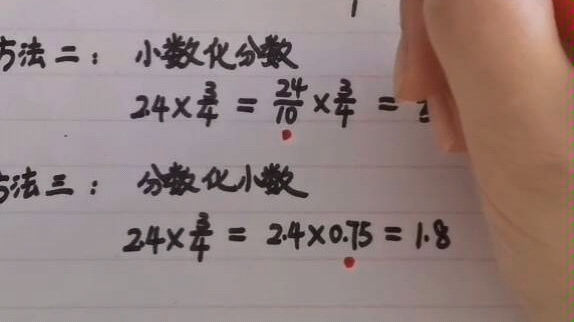 方法二：小数化分数
2.4×3/4 = 24/10×3/4 =
方法三：分数化小数
2.4×3/4 = 2.4×0.75 = 1.8